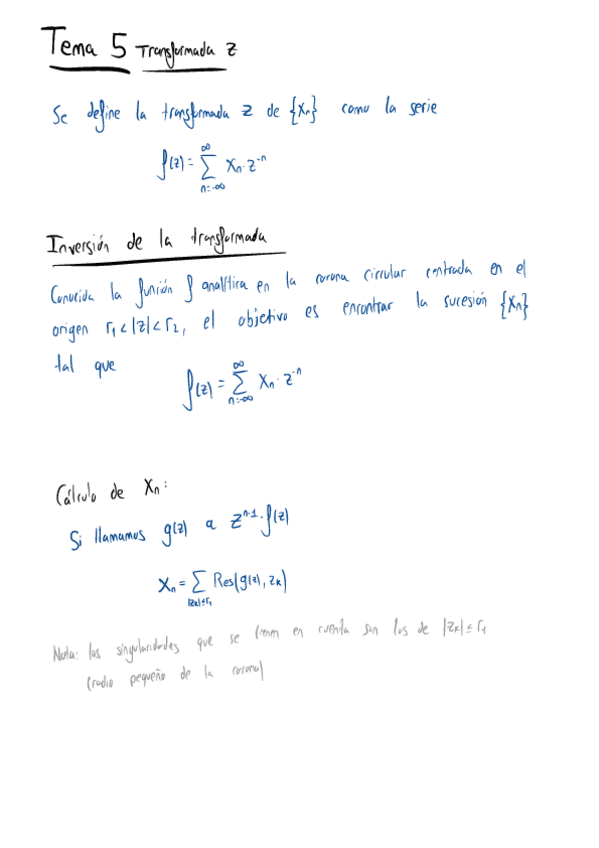 Tema 5 Transformada z
Se define la transformada z de {Xn} como la serie
f(z) = ∑_{n=-∞}^{∞} Xn · z^{-n}
Inversión de la transformada
Conocida la función f analítica en la corona circular centrada en el
origen r₁<|z|<r₂, el objetivo es encontrar la sucesión {Xn}
tal que
f(z) = ∑_{n=-∞}^{∞} Xn · z^{-n}
Cálculo de Xn:
Si llamamos g(z) a z^{n-1} · f(z)
Xn = ∑_{|zk|≤r₁} Res(g(z), zk)
Nota: las singularidades que se toman en cuenta son las de |zk| ≤ r₁
(radio pequeño de la corona)